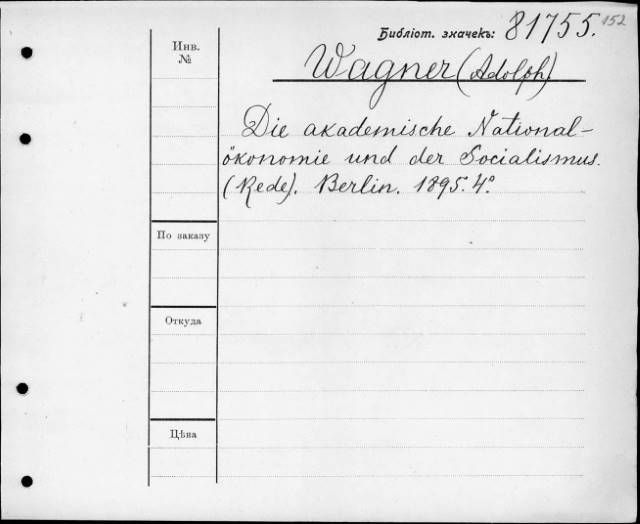 Библіот. значекъ: 81755. 152
Инв.
№
Wagner (Adolph).
Die akademische National-
ökonomie und der Socialismus.
(Rede). Berlin. 1895. 4°
По заказу
Откуда
Цѣна